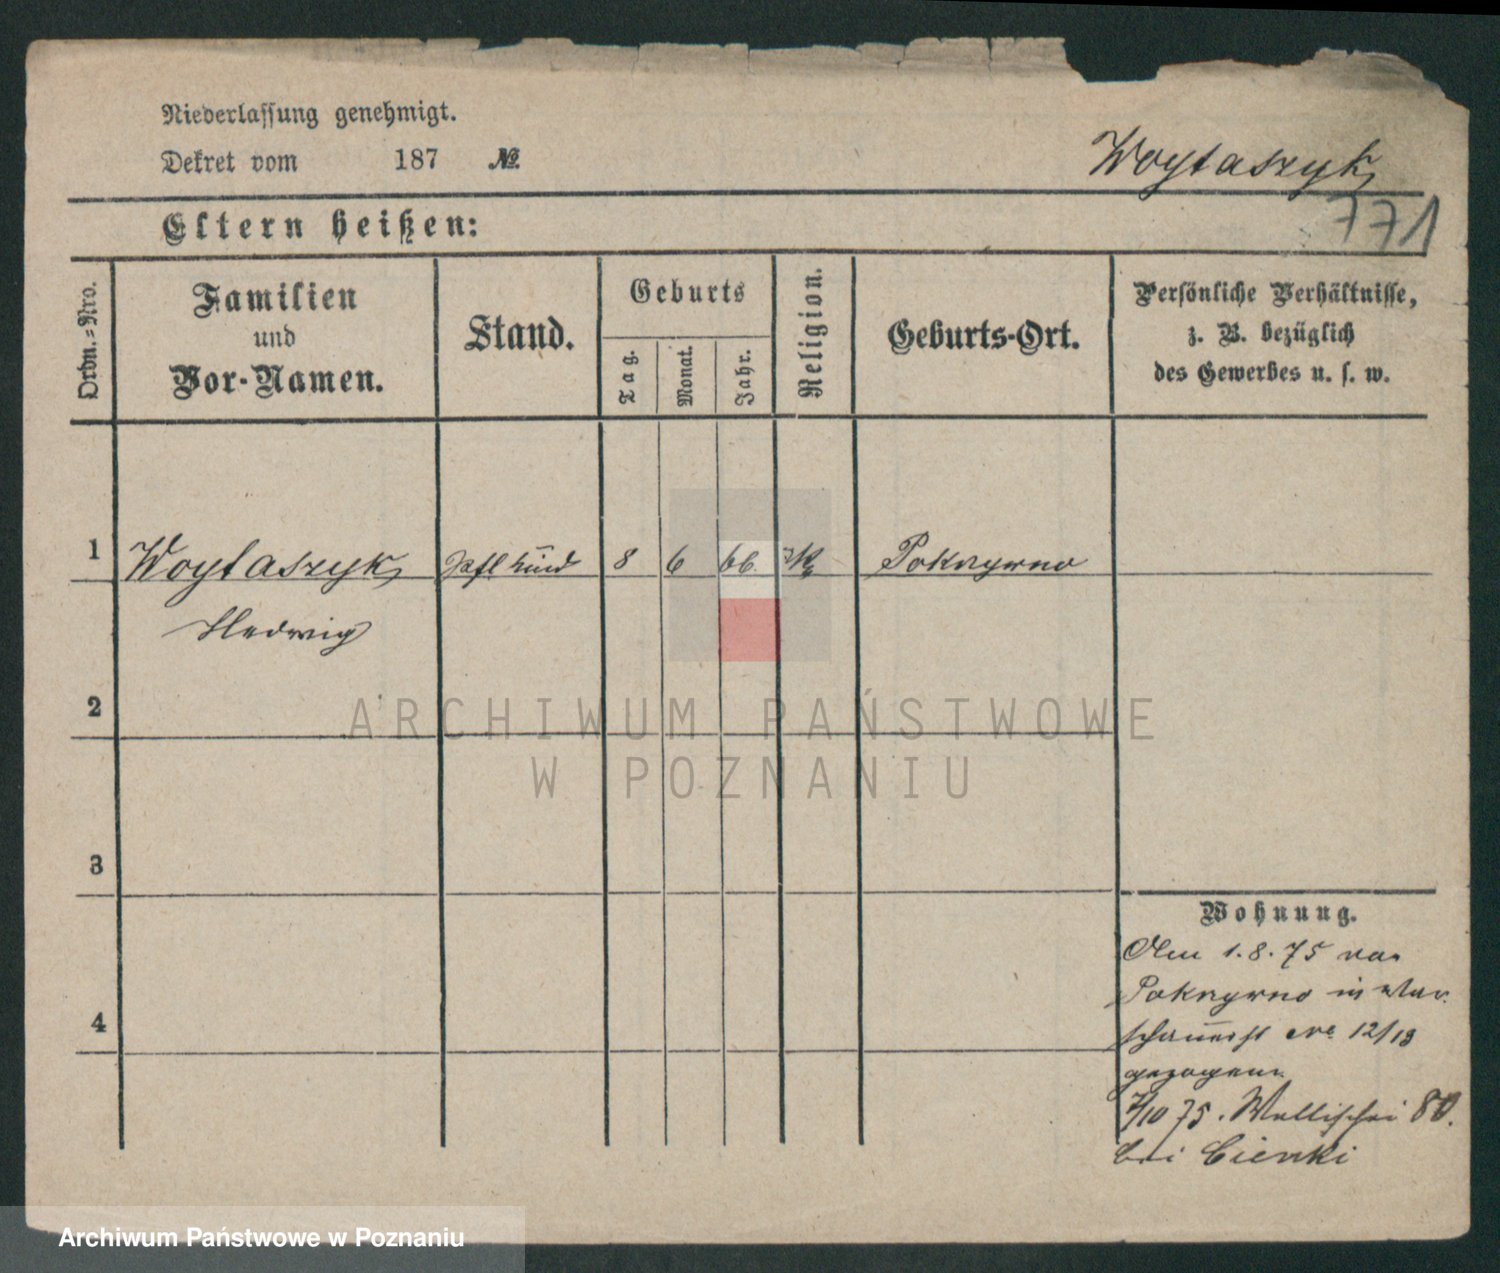 Niederlassung genehmigt.
Dekret vom 187 №
Woytaszyk
771
Eltern heißen:
Ordn.=Nro.
Familien
und
Vor-Namen.
Stand.
Geburts
Tag.
Monat.
Jahr.
Religion.
Geburts-Ort.
Persönliche Verhältnisse,
z. B. bezüglich
des Gewerbes u. s. w.
1 Woytaszyk 8 6 66. K Pokrzywno
Hedwig
2
ARCHIWUM PAŃSTWOWE
W POZNANIU
3
Wohnung.
1.8.75
Pokrzywno in
4
12/13
gezogen.
7/10 75. Wallischei 80.
bei Cienki
Archiwum Państwowe w Poznaniu